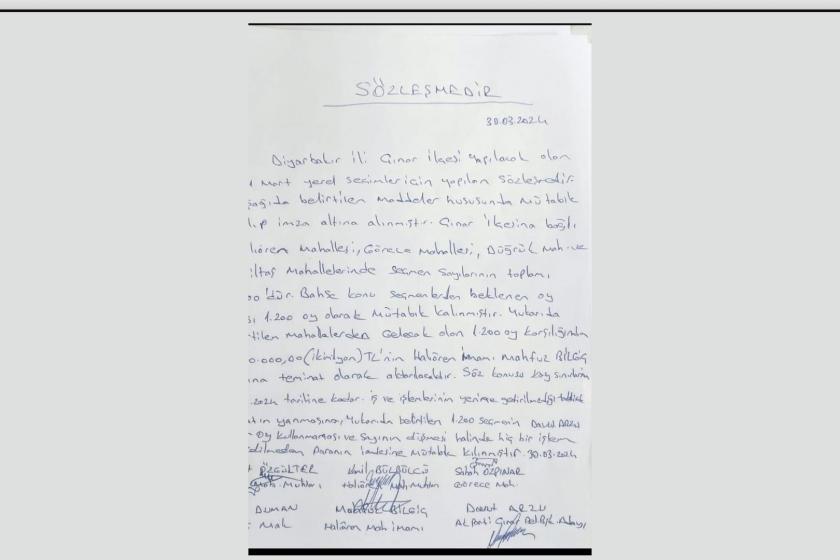 SÖZLEŞMEDİR
30.03.2024
Diyarbakır ili Çınar ilçesi yapılacak olan
Mart yerel seçimler için yapılan sözleşmedir.
belirtilen maddeler hususunda mütabık
imza altına alınmıştır. Çınar ilçesine bağlı
Mahallesi, Görece Mahallesi, Düğrük Mah. ve
Mahallelerinde seçmen sayılarının toplamı
Bahse konu seçmenlerden beklenen oy
1.200 oy olarak Mütabık kalınmıştır. Yukarıda
Mahallelerden Gelecek olan 1.200 oy karşılığında
0.000,00 TL'nin Halören imamı Mahfuz BİLGİÇ
teminat olarak aktarılacaktır. Söz konusu
tarihine kadar. iş ve işlemlerinin yerine getirilmediği
yanmasına, Yukarıda belirtilen 1.200 seçmenin Davut ARZU
oy kullanmaması ve sayının düşmesi halinde hiç bir işlem
Paranın iadesine Mütabık Kılınmıştır. 30.03.2024
ÖZGÜLTER BÜLBÜLCÜ Sabah ÖZPINAR
Mah. Muhtarı Halören Mah. Muhtarı Görece Mah.
DUMAN Mahfuz BİLGİÇ Davut ARZU
Mah Halören Mah imamı AK Parti Çınar